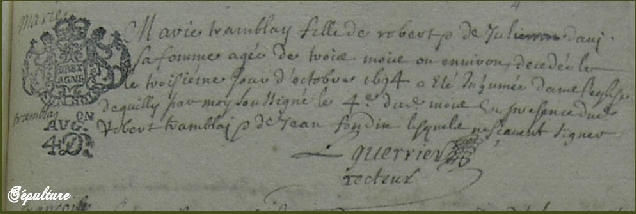 marie
tramblay
BRET
AGNE
ON
AUG.
4 D.
Marie tramblay fille de robert & de Julienne dani
sa fomme agée de troix mois ou environ decedée le
le troisieme jour d'octobre 1694 a eté Inhumée dans l'eglise
de quilly par moy soussigné le 4e dud. mois en presence dud.
Robert tramblay & de Jean fondin lesquels ne scavent signer
guerrier
recteur
Sépulture